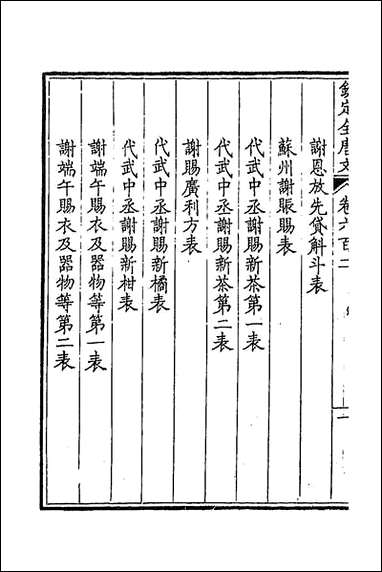 欽定全唐文 卷六百二 一
謝恩放先貸斛斗表
蘇州謝賑賜表
代武中丞謝賜新茶第一表
代武中丞謝賜新茶第二表
謝賜廣利方表
代武中丞謝賜新橘表
代武中丞謝賜新柑表
謝端午賜衣及器物等第一表
謝端午賜衣及器物等第二表